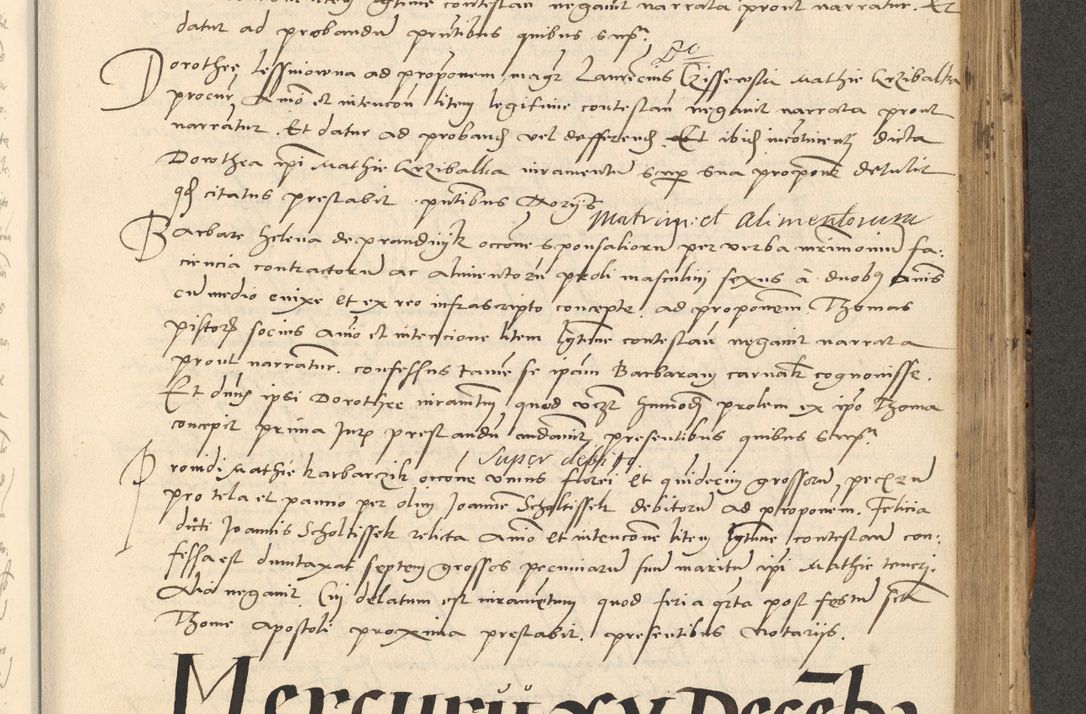 contestan negavit narrata prout narratur. Et
datur ad probandū pntibus quibus supra
Dorothee Lessniowna ad proponem magri Laurencius Mathie Grzibalka
procur animo et intencon litem legittime contestan negavit narrata prout
narratur. Et datur ad proband vel defferend. Et ibid incontinent dicta
Dorothea ipi Mathie Grzibalka iuramentū super sua propone detulit
qd citatus prestabit. pntibus Notarijs
Matrim et Alimentorum
Barbare Helena de prandinik occōne sponsaliorū per verba mrimonium fa-
ciencia contractorū ac alimentorū proli masculini sexus a duobus annis
cū medio enixe et ex reo infrascripto concepte. ad proponem. Thomas
pistor socius animo et intencione litem legtime contestan negavit narrata
prout narratur. confessus tame se ipam Barbaram carnalr cognovisse.
Et dnus ipsi Dorothee iuramtū quod huiusmodi prolem ex ipo Thoma
concepit prima Jurid prestandū presentibus quibus supra
super debito
Providi Mathie Karbarczik occōne unius floreni et quidecim grossorū pechrū
pro tela et panno per olim Joannem Scholtissek debitorū ad proponem. Felicia
dicti Joannis Scholtissek relicta animo et intencōne litem legtime contestan con-
fessa est dumtaxat septem grossos pecuniarū suū maritū ipi Mathie teneri.
Alia negavit. Cui delatum est iuramentum quod feria qrta post festū scti
Thome Apostoli proxima prestabit. presentibus Notarijs.
Mercurij XV Decēb